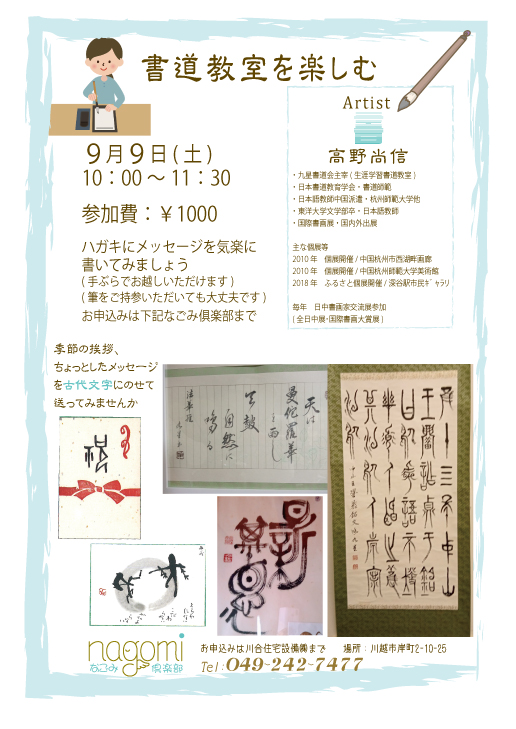 書道教室を楽しむ
9月9日(土)
10:00～11:30
参加費:￥1000
ハガキにメッセージを気楽に
書いてみましょう
(手ぶらでお越しいただけます)
(筆をご持参いただいても大丈夫です)
お申込みは下記なごみ倶楽部まで
Artist
高野尚信
・九星書道会主宰(生涯学習書道教室)
・日本書道教育学会・書道師範
・日本語教師中国派遣・杭州師範大学他
・東洋大学文学部卒・日本語教師
・国際書画展・国内外出展
主な個展等
2010年 個展開催/中国杭州市西湖畔画廊
2010年 個展開催/中国杭州師範大学美術館
2018年 ふるさと個展開催/深谷駅市民ギャラリ
毎年 日中書画家交流展参加
(全日中展・国際書画大賞展)
季節の挨拶、
ちょっとしたメッセージ
を古代文字にのせて
送ってみませんか
天は
曼陀羅華
を雨し
天鼓
自然に
鳴る
nagomi
なごみ倶楽部
お申込みは川合住宅設備㈱まで 場所:川越市岸町2-10-25
Tel:049-242-7477